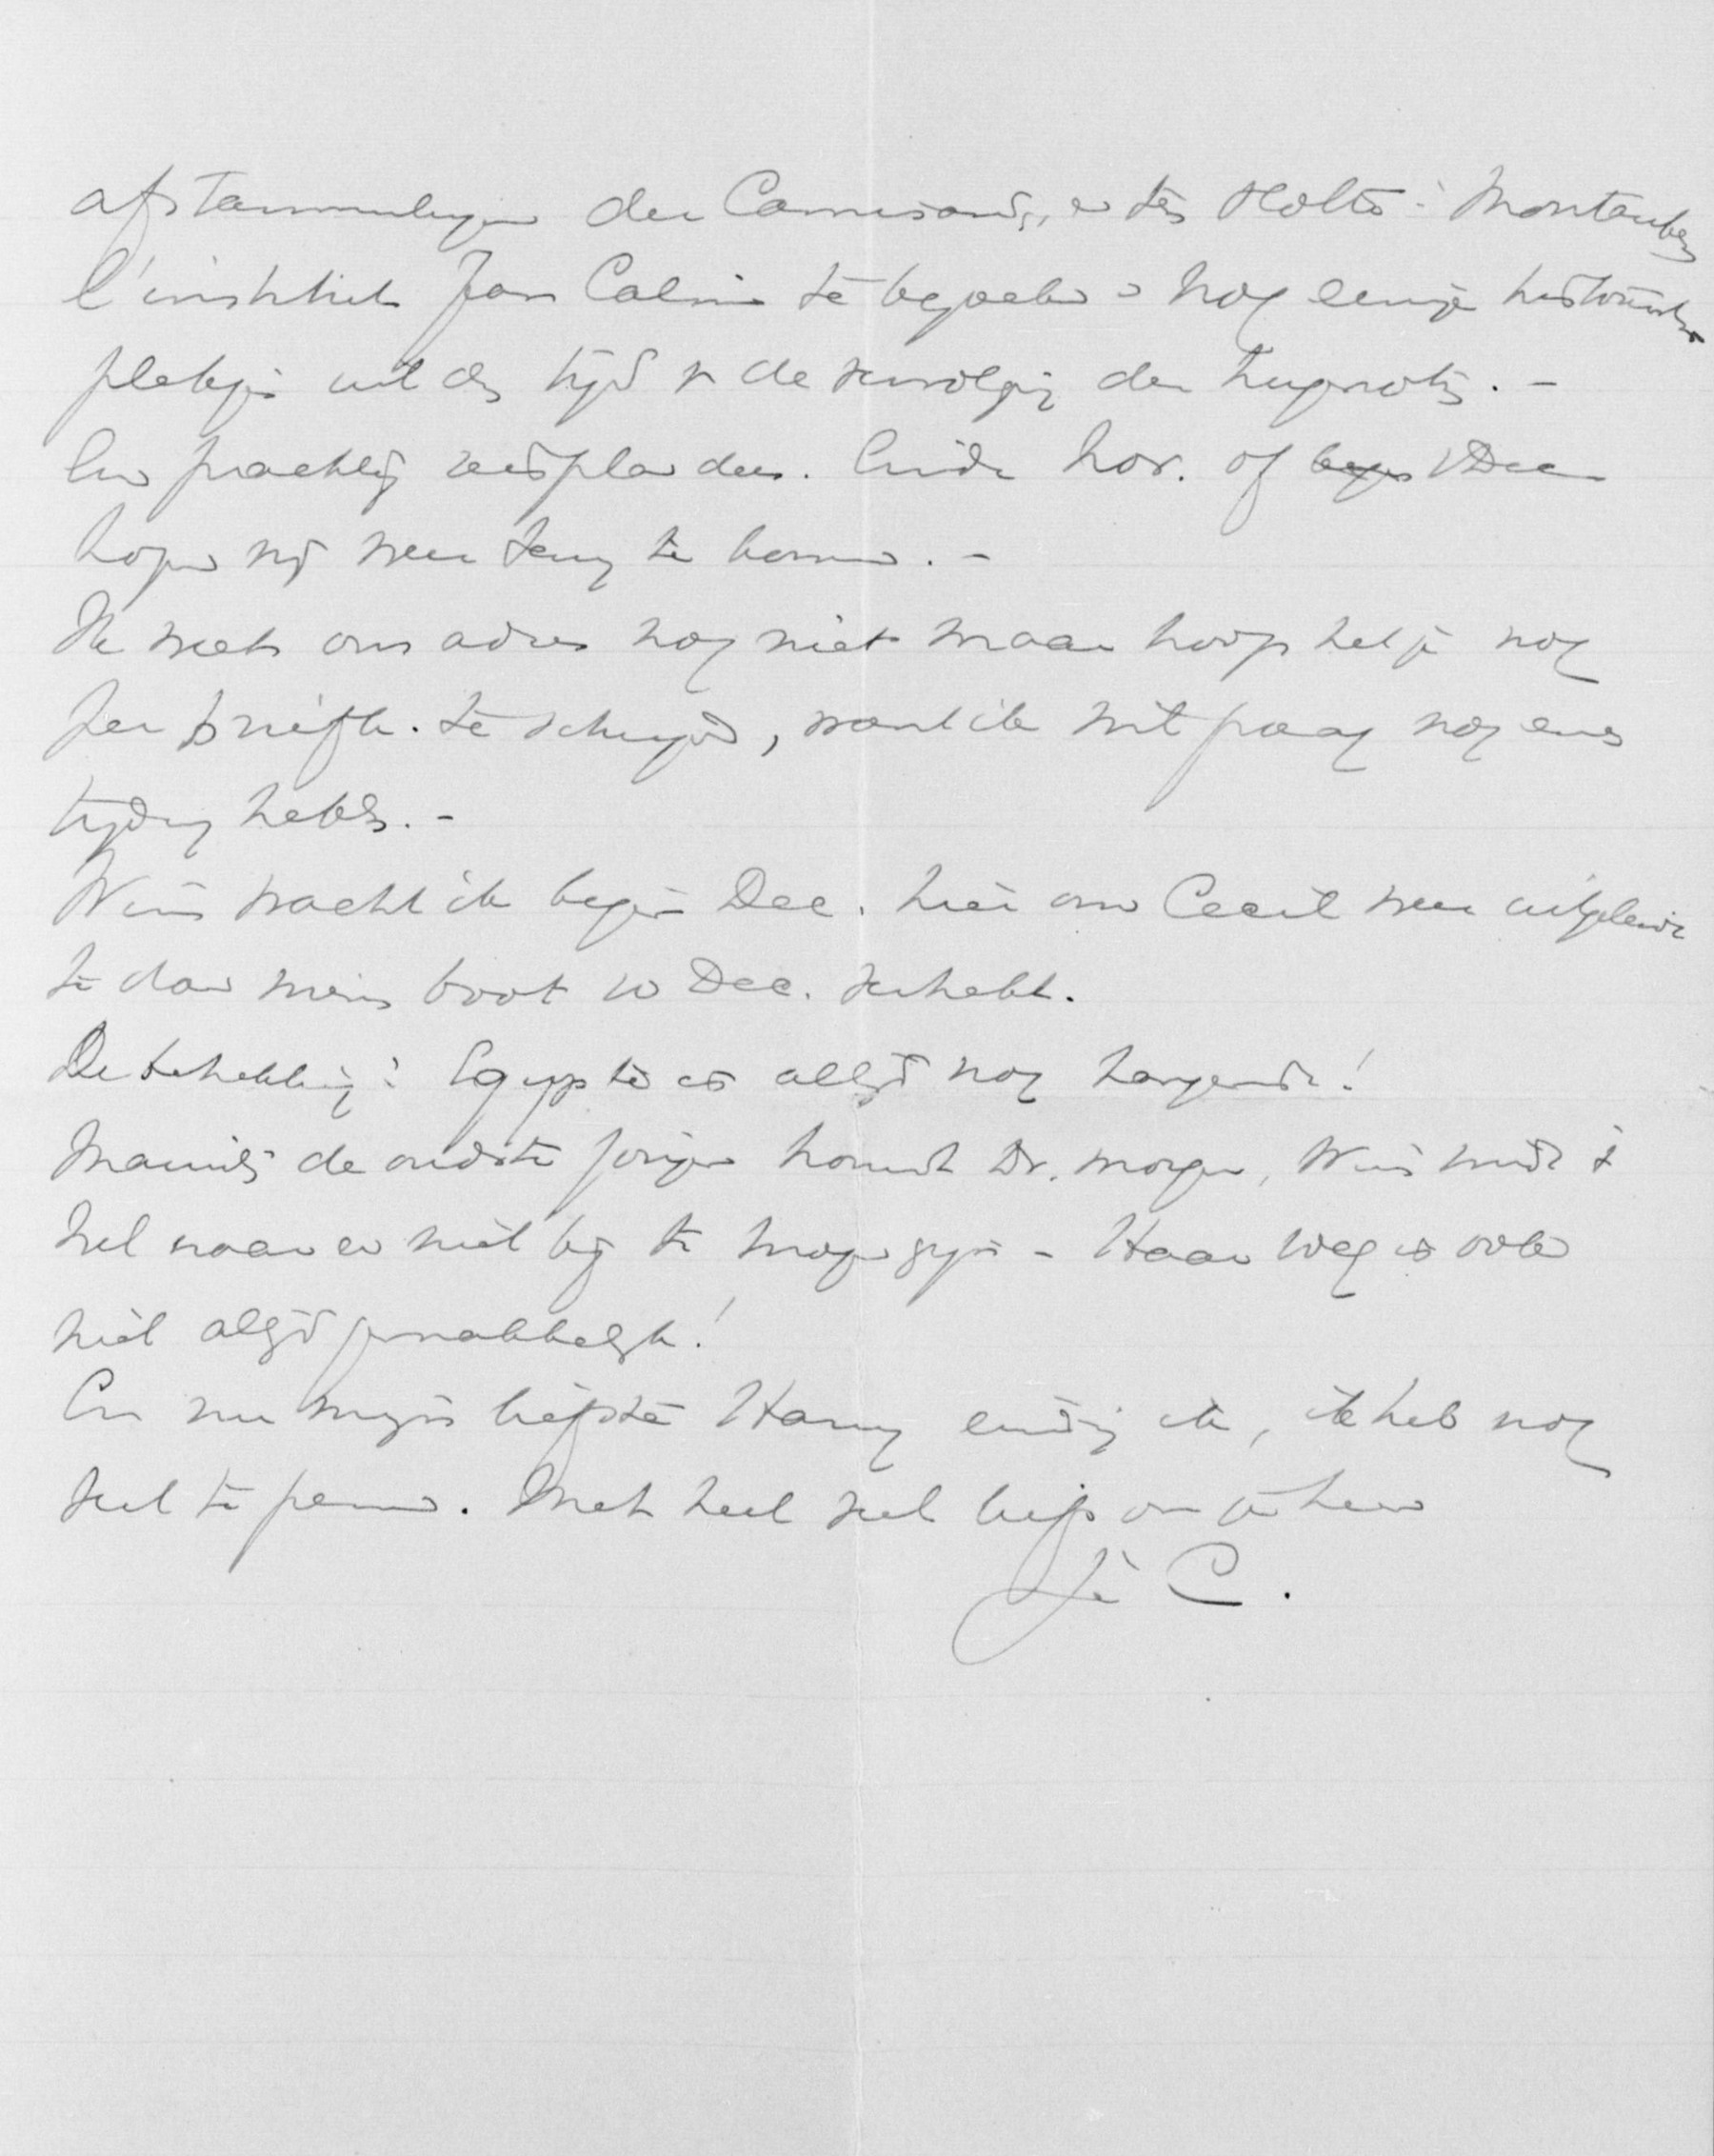 afstammelingen der Camisards, en ten slotte i Montauban
l'institut Jean Calvin te bezoeken & nog eenige historische
plekjes uit den tijd v de vervolging der Hugenoten. -
Een prachtig reisplan dus. Einde Nov. of begin Dec
hopen wij weer terug te komen. -
Ik weet ons adres nog niet maar hoop het je nog
per briefk. te schrijven, want ik wil graag nog eens
tijding hebben. -
Wim wacht ik begin Dec. hier om Cecil weer uitgeleide
te doen wiens boot 10 Dec. vertrekt.
De betrekking i Egypte is altijd nog hangende!
de oudste jongen komt Dr. morgen, Wim vindt 't
het naar er niet bij te mogen zijn - Haar weg is ook
niet altijd gemakkelijk!
En nu mijn liefste Harry eindig ik, ik heb nog
veel te pennen. Met heel veel liefs van je
Je C.